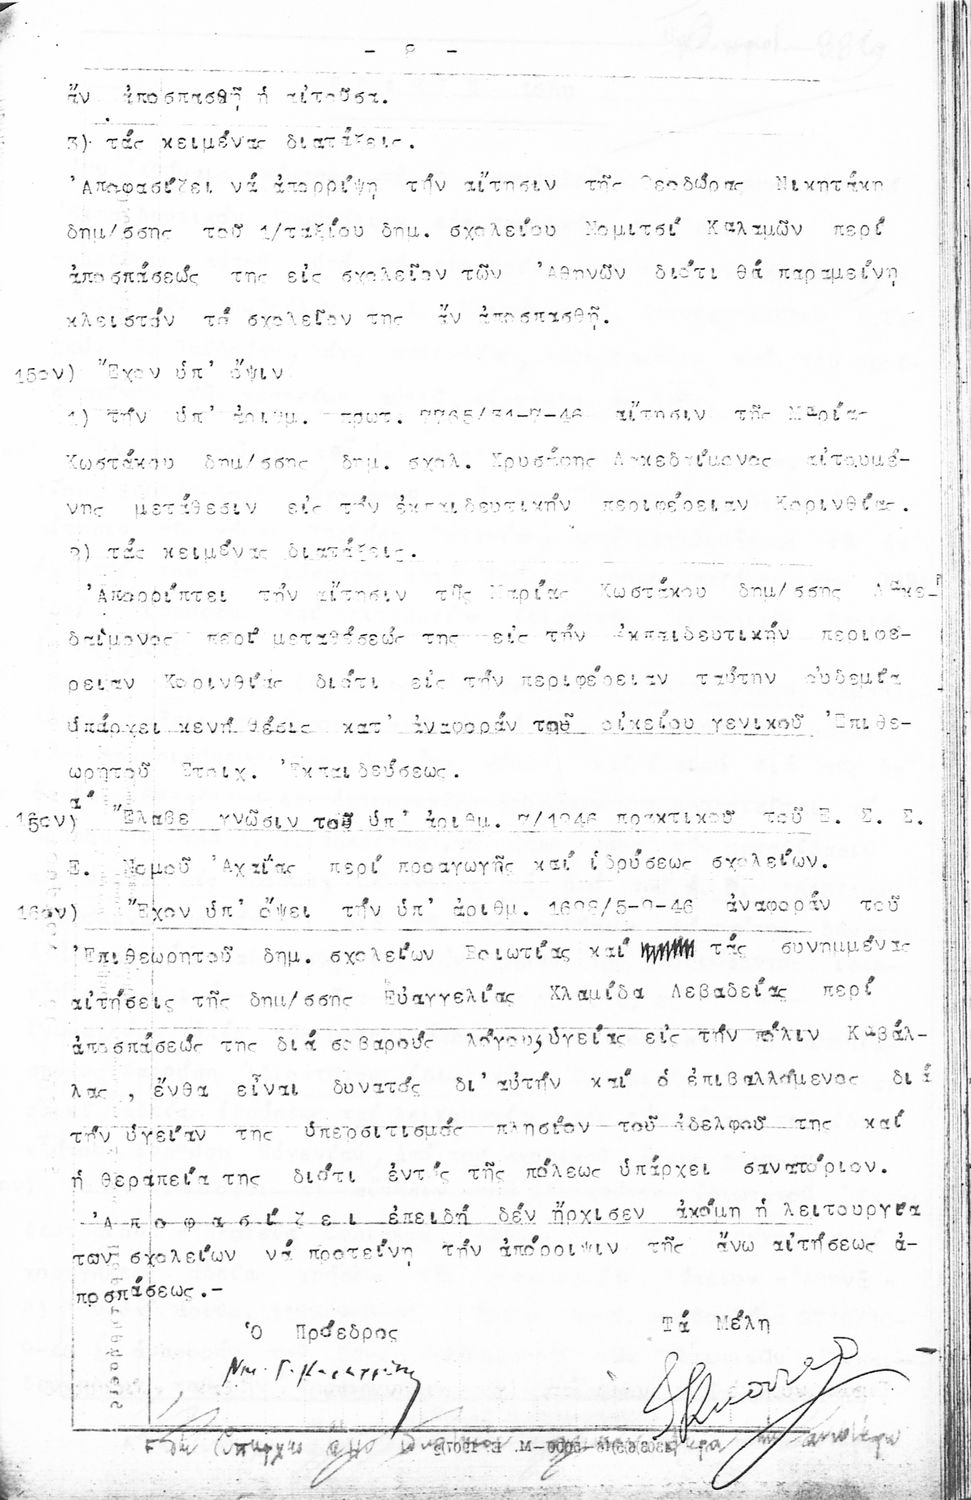 - 8 -
ἄν ἀποσπασθῇ ἡ αἰτοῦσα.
3) τάς κειμένας διατάξεις.
Ἀποφασίζει νά ἀπορρίψῃ τήν αἴτησιν τῆς Θεοδώρας Νικητάκη
δημ/σσης τοῦ 1/ταξίου δημ. σχολείου Νομιτσί Καλαμῶν περί
ἀποσπάσεώς της εἰς σχολεῖον τῶν Ἀθηνῶν διότι θά παραμείνῃ
κλειστόν τό σχολεῖον της ἄν ἀποσπασθῇ.
15ον) Ἔχον ὑπ' ὄψιν
1) τήν ὑπ' ἀριθμ. πρωτ. 7765/31-7-46 αἴτησιν τῆς Μαρίας
Κωστάκου δημ/σσης δημ. σχολ. Χρυσάφης Λακεδαίμονος αἰτουμέ-
νης μετάθεσιν εἰς τήν ἐκπαιδευτικήν περιφέρειαν Κορινθίας.
2) τάς κειμένας διατάξεις.
Ἀπορρίπτει τήν αἴτησιν τῆς Μαρίας Κωστάκου δημ/σσης Λακε-
δαίμονος περί μεταθέσεώς της εἰς τήν ἐκπαιδευτικήν περιφέ-
ρειαν Κορινθίας διότι εἰς τήν περιφέρειαν ταύτην οὐδεμία
ὑπάρχει κενή θέσις κατ' ἀναφοράν τοῦ οἰκείου γενικοῦ Ἐπιθε-
ωρητοῦ Στοιχ. Ἐκπαιδεύσεως.
15ον)α Ἔλαβε γνῶσιν τοῦ ὑπ' ἀριθμ. 7/1946 πρακτικοῦ τοῦ Ε. Σ. Σ.
Ε. Νομοῦ Ἀχαΐας περί προαγωγῆς καί ἱδρύσεως σχολείων.
16ον) Ἔχον ὑπ' ὄψει τήν ὑπ' ἀριθμ. 1698/5-9-46 ἀναφοράν τοῦ
Ἐπιθεωρητοῦ δημ. σχολείων Βοιωτίας καί τάς συνημμένας
αἰτήσεις τῆς δημ/σσης Εὐαγγελίας Χλαμίδα Λεβαδείας περί
ἀποσπάσεώς της διά σοβαρούς λόγους ὑγείας εἰς τήν πόλιν Καβάλ-
λας , ἔνθα εἶναι δυνατός δι' αὐτήν καί ὁ ἐπιβαλλόμενος διά
τήν ὑγείαν της ὑπερσιτισμός πλησίον τοῦ ἀδελφοῦ της καί
ἡ θεραπεία της διότι ἐντός τῆς πόλεως ὑπάρχει σανατόριον.
Ἀ π ο φ α σ ί ζ ε ι ἐπειδή δέν ἤρχισεν ἀκόμη ἡ λειτουργία
των σχολείων νά προτείνῃ τήν ἀπόρριψιν τῆς ἄνω αἰτήσεως ἀ-
ποσπάσεως.-
Ὁ Πρόεδρος Τά Μέλη